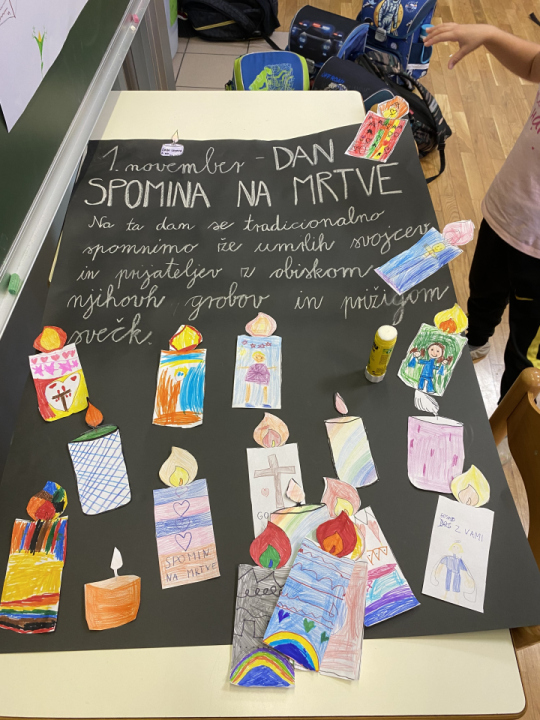 1. november - DAN
SPOMINA NA MRTVE
Na ta dan se tradicionalno
spomnimo že umrlih svojcev
in prijateljev z obiskom
njihovih grobov in prižigom
svečk.
SPOMIN
NA MRTVE
GO
BOG
DAS Z VAMI